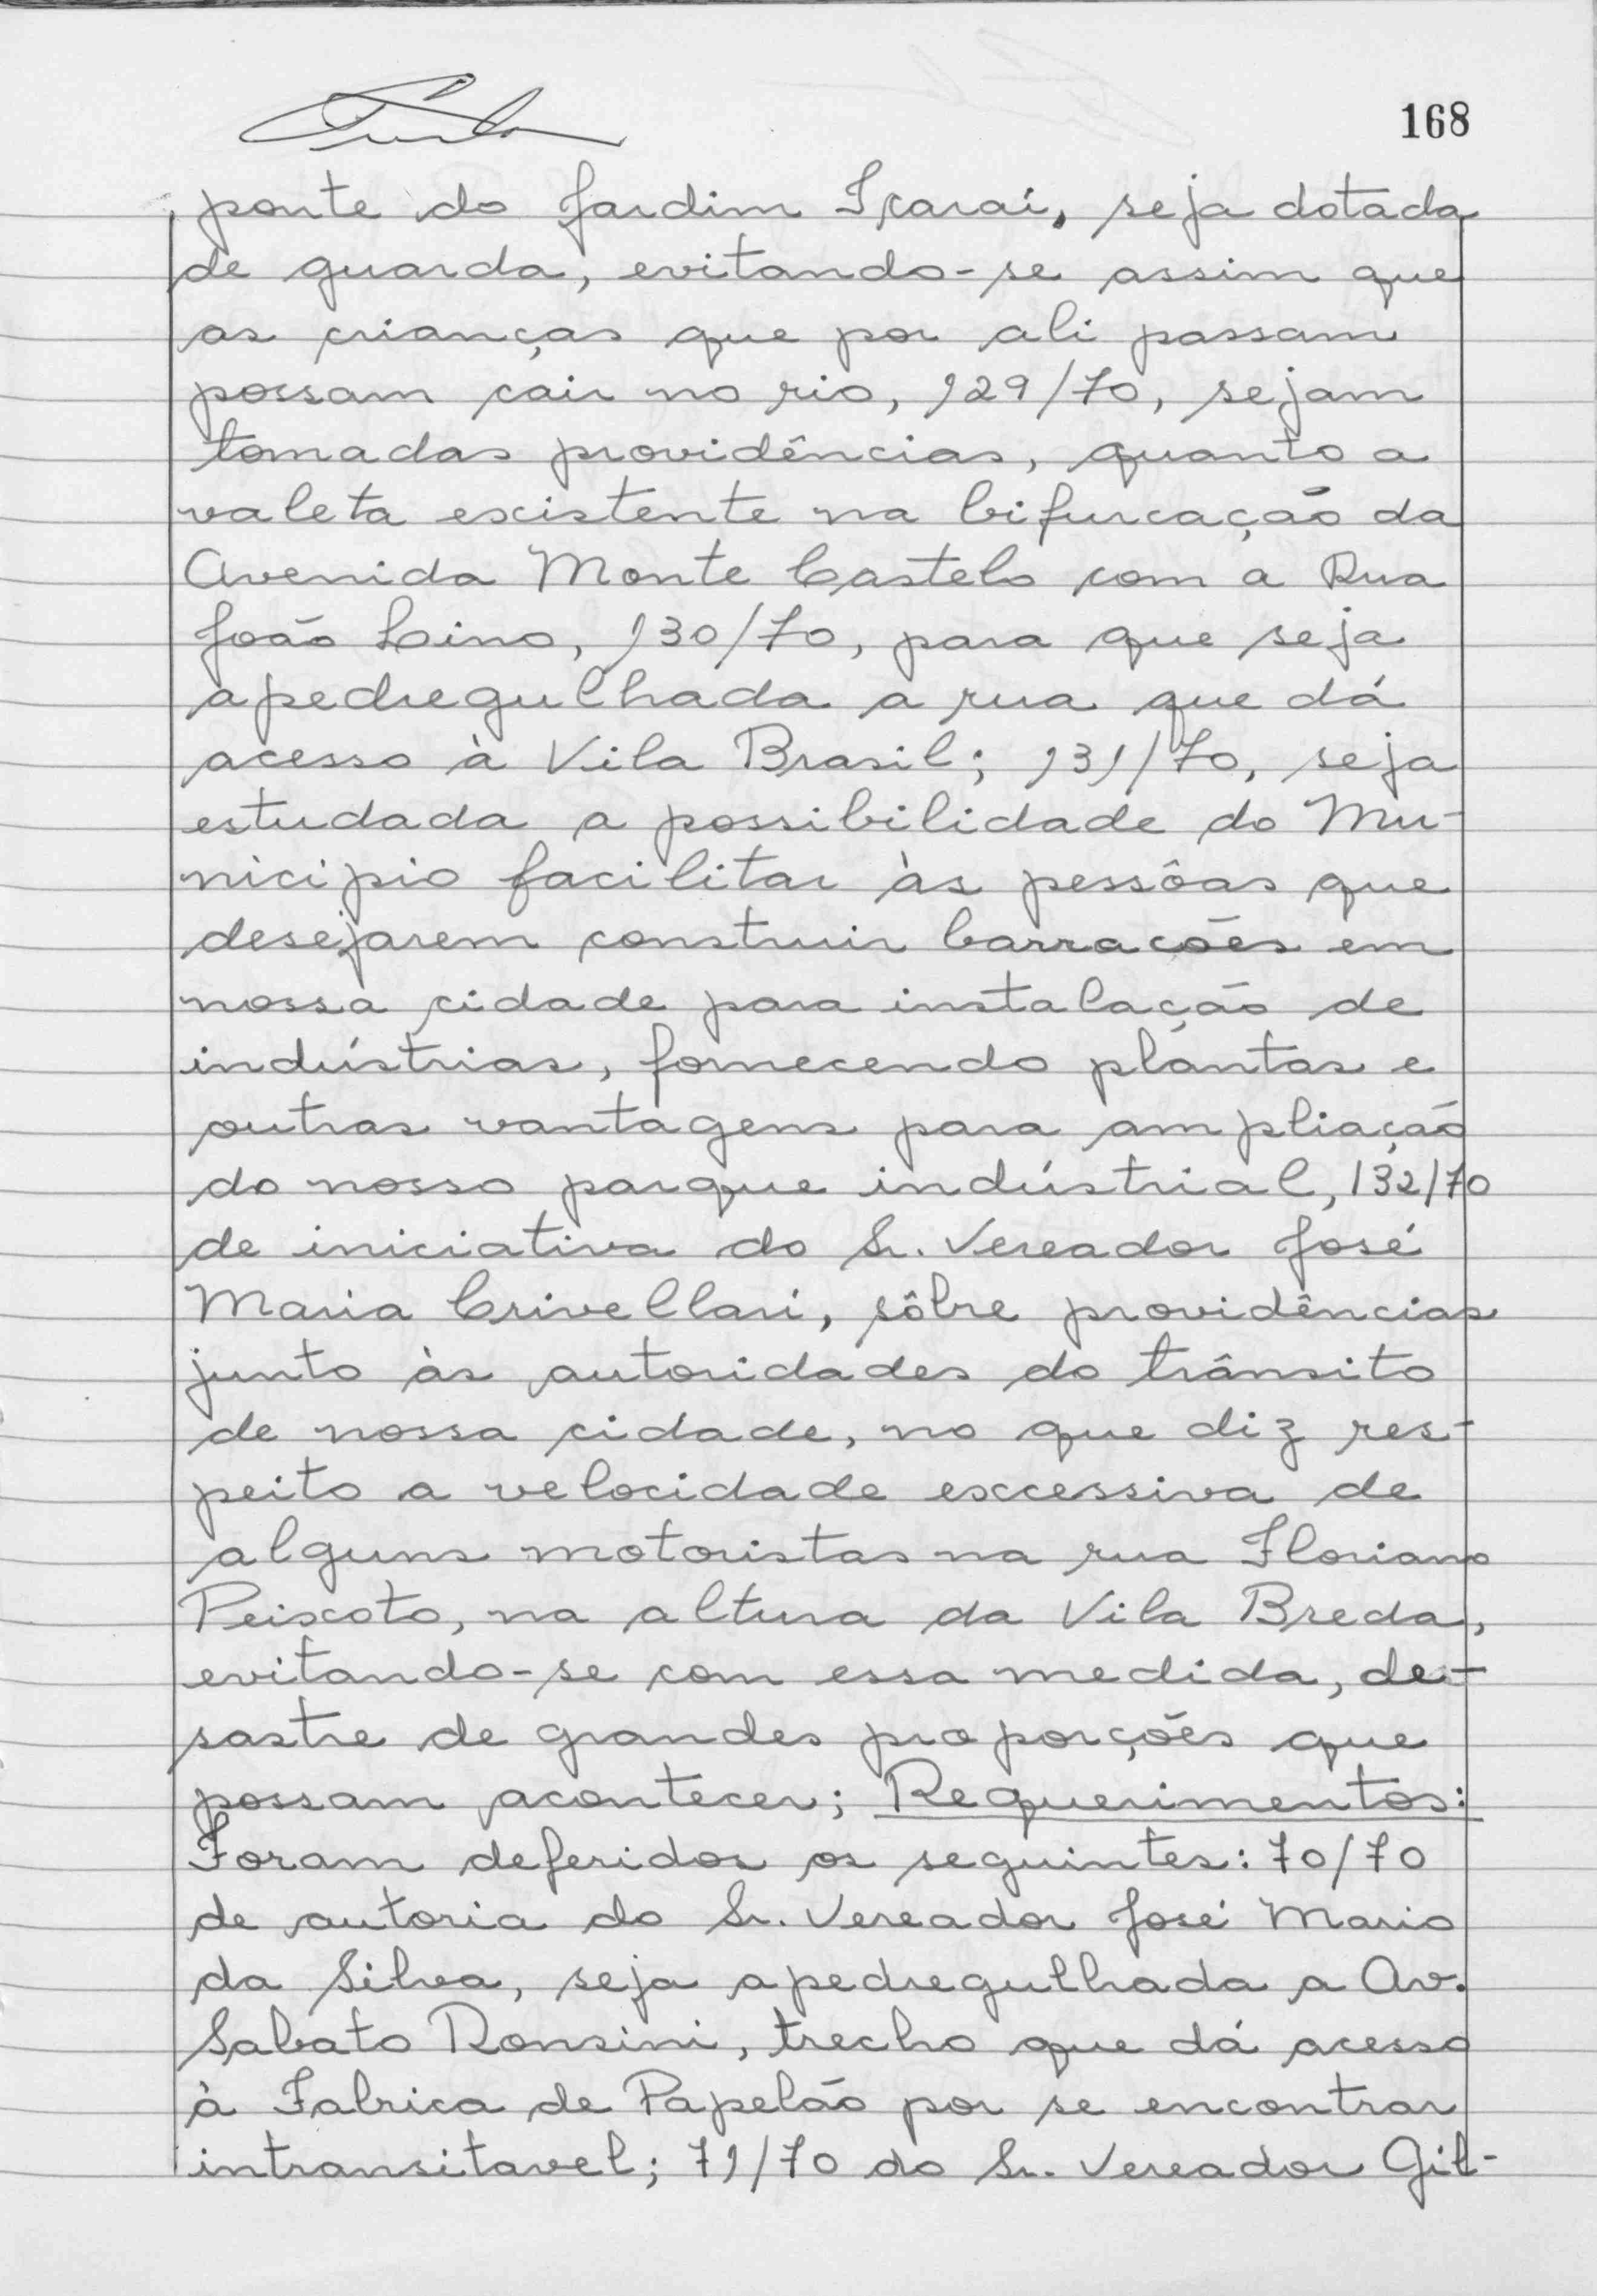 168
ponte do Jardim Içarai, seja dotada
de guarda, evitando-se assim que
as crianças que por ali passam
possam cair no rio, 129/70, sejam
tomadas providências, quanto a
valeta existente na bifurcação da
Avenida Monte Castelo com a Rua
João Lino, 130/70, para que seja
apedregulhada a rua que dá
acesso à Vila Brasil; 131/70, seja
estudada a possibilidade do Mu-
nicipio facilitar às pessôas que
desejarem construir barracões em
nossa cidade para instalação de
indústrias, fornecendo plantas e
outras vantagens para ampliação
do nosso parque indústrial, 132/70
de iniciativa do Sr. Vereador José
Maria Crivellari, sôbre providências
junto às autoridades do trânsito
de nossa cidade, no que diz res-
peito a velocidade excessiva de
alguns motoristas na rua Floriano
Peixoto, na altura da Vila Breda,
evitando-se com essa medida, de-
sastre de grandes proporções que
possam acontecer; Requerimentos:
Foram deferidos os seguintes: 70/70
de autoria do Sr. Vereador José Mario
da Silva, seja apedregulhada a Av.
Sabato Ronsini, trecho que dá acesso
à Fabrica de Papelão por se encontrar
intransitavel; 71/70 do Sr. Vereador Gil-